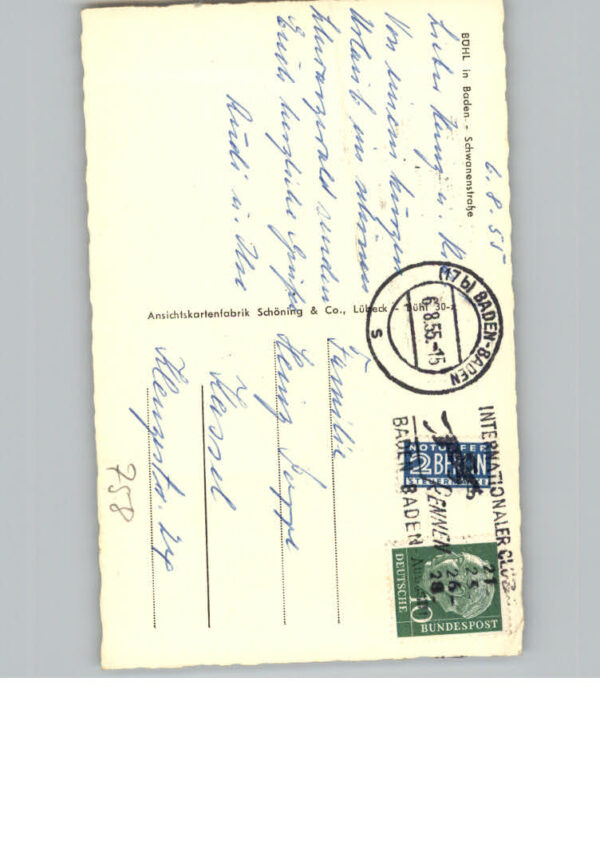 BÜHL in Baden - Schwanenstraße
6.8.55
Lieber Heinz u.
Von unserem kurzen
Urlaub im schönen
Schwarzwald senden
Euch herzliche Grüße
Rudi u. Ilse
Ansichtskartenfabrik Schöning & Co., Lübeck - Bühl 30-
(17b) BADEN-BADEN
6.8.55.-15
s
INTERNATIONALER CLUB
RENNEN
BADEN-BADEN
21
26-
28.
NOTOPFER
2 BERLIN
STEUERMARKE
DEUTSCHE
10
BUNDESPOST
Familie
Heinz
Kassel
758